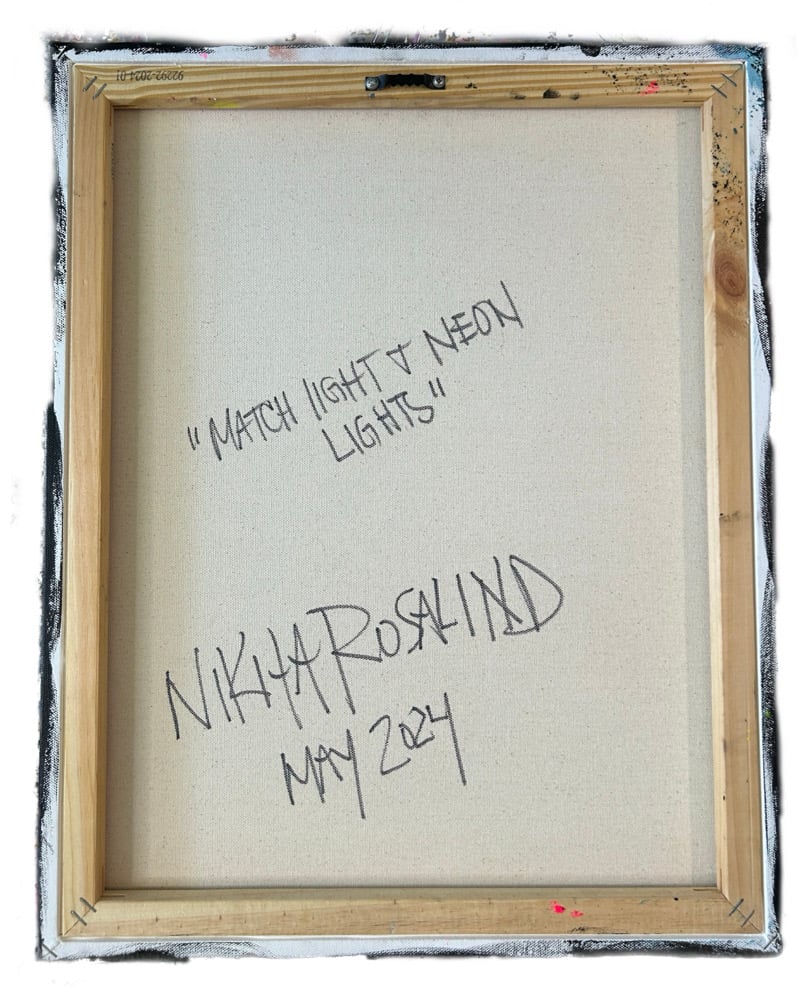 92292-2024-01
"MATCH lIGHT & NEON
LIGHTS"
NIKITA ROSALIND
MAY 2024